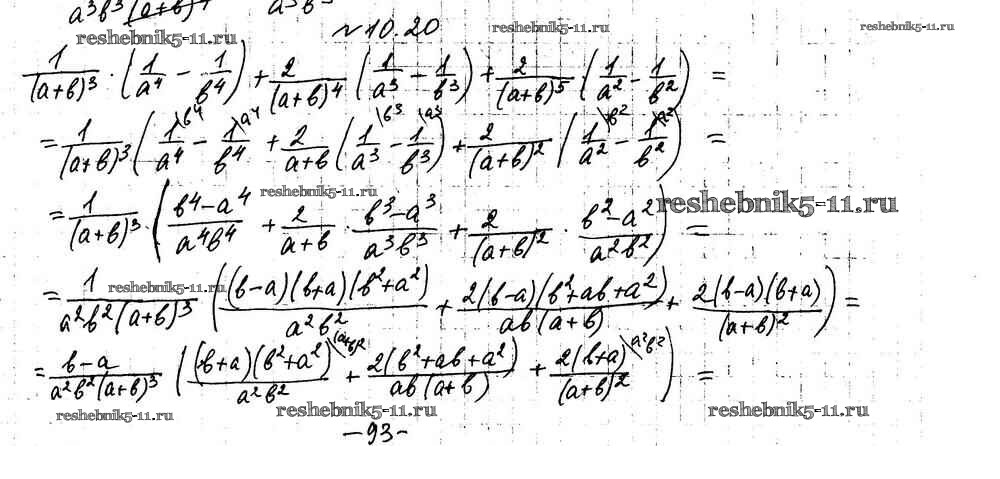 a³b³(a+b)⁴ a³b³
reshebnik5-11.ru №10.20 reshebnik5-11.ru reshebnik5-11.ru
1/(a+b)³ · (1/a⁴ − 1/b⁴) + 2/(a+b)⁴ (1/a³ − 1/b³) + 2/(a+b)⁵ · (1/a² − 1/b²) =
= 1/(a+b)³ (1\b⁴/a⁴ − 1\a⁴/b⁴ + 2/(a+b) (1\b³/a³ − 1\a³/b³) + 2/(a+b)² · (1\b²/a² − 1\a²/b²) =
reshebnik5-11.ru reshebnik5-11.ru
= 1/(a+b)³ · ((b⁴−a⁴)/(a⁴b⁴) + 2/(a+b) · (b³−a³)/(a³b³) + 2/(a+b)² · (b²−a²)/(a²b²)) =
reshebnik5-11.ru
= 1/(a²b²(a+b)³) ((b−a)(b+a)(b²+a²)/(a²b²) + 2(b−a)(b²+ab+a²)/(ab(a+b)) + 2(b−a)(b+a)/(a+b)²) =
= (b−a)/(a²b²(a+b)³) ((b+a)(b²+a²)\(a+b)²/(a²b²) + 2(b²+ab+a²)/(ab(a+b)) + 2(b+a)\a²b²/(a+b)²) =
reshebnik5-11.ru reshebnik5-11.ru reshebnik5-11.ru
−93−